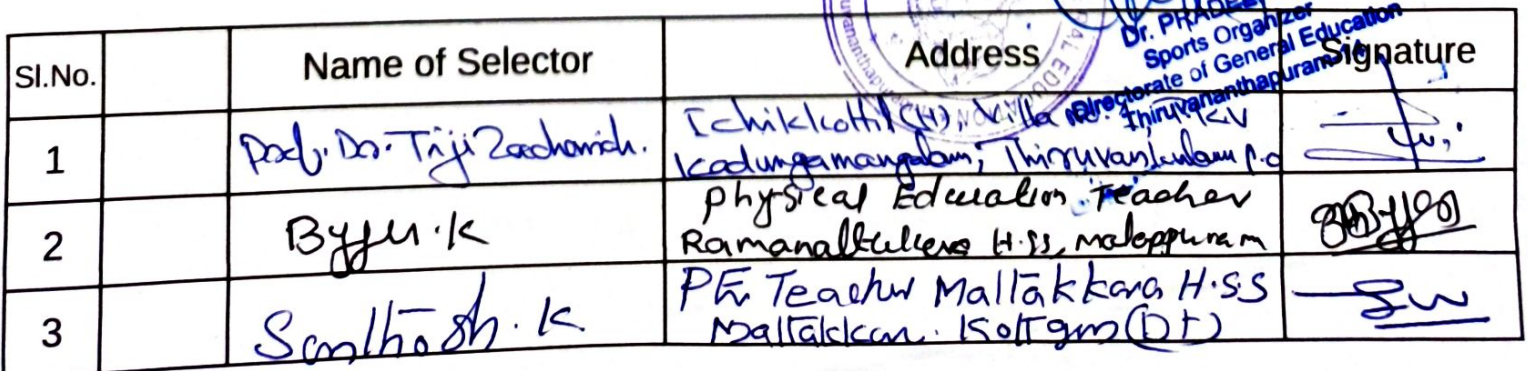 Dr. PRADEE
Sports Organizer
Directorate of General Education
Thiruvananthapuram-14
Sl.No. Name of Selector Address Signature
1 Prof. Dr. Tiji Zachariah. Ichikkottil (H), Villa No:
Kadungamangalam, Thiruvankulam P.O
2 Byju.K Physical Education Teacher
H.SS, Malappuram
3 Santhosh.K. PE Teacher Mattakkara H.S.S
Mattakkara. Kottym (Dt)